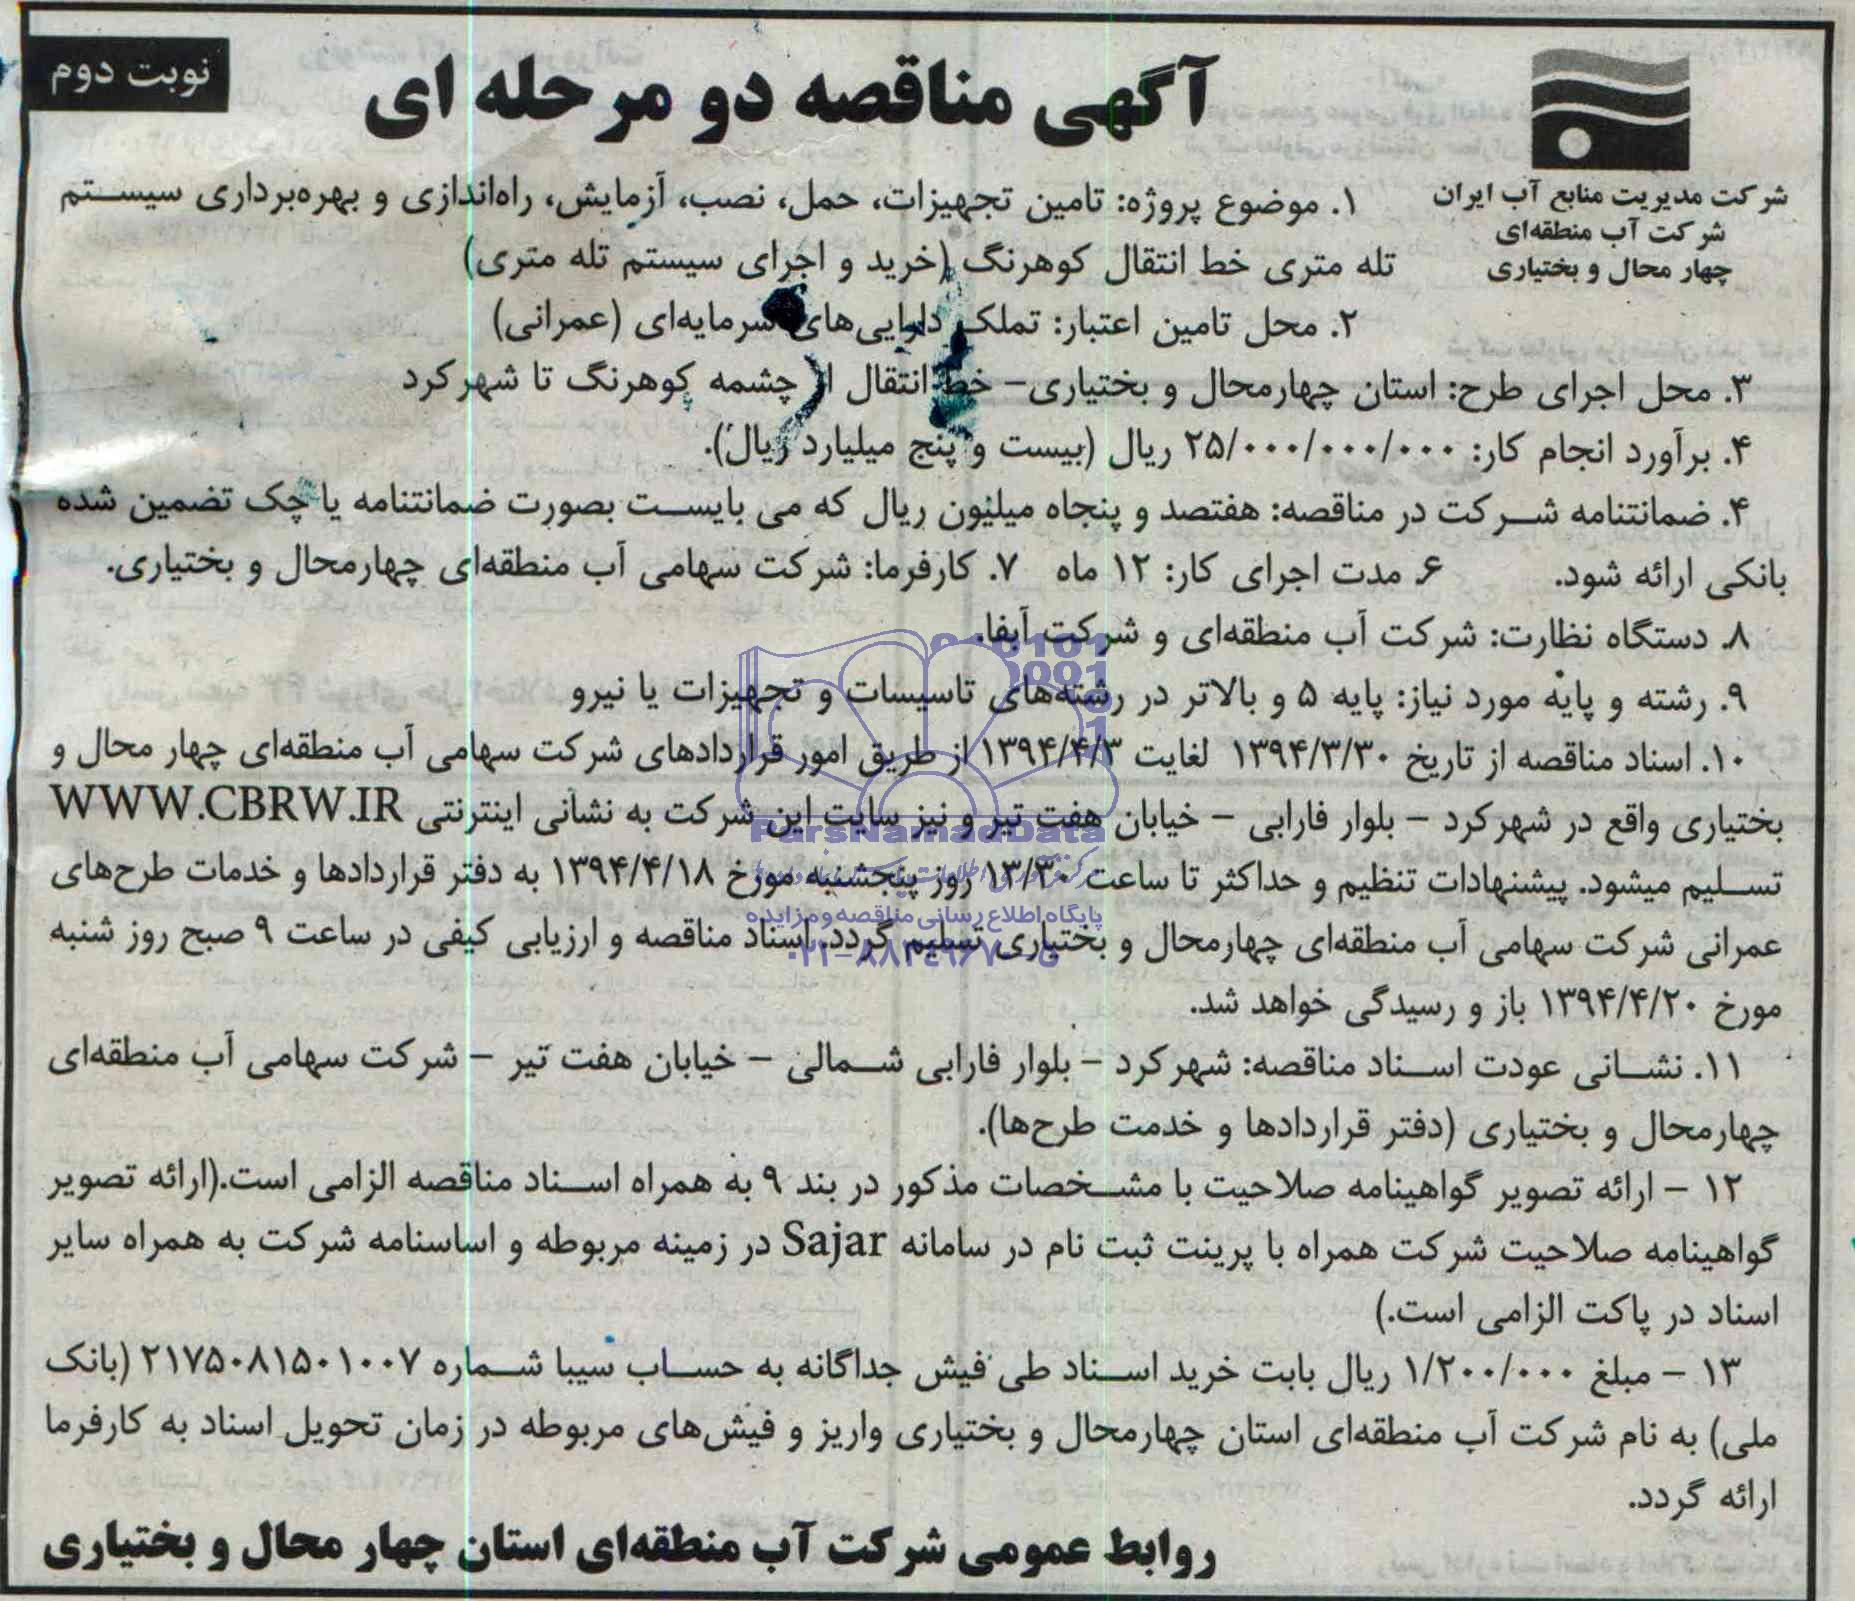 نوبت دوم
آگهی مناقصه دو مرحله ای
شرکت مدیریت منابع آب ایران
شرکت آب منطقه‌ای
چهار محال و بختیاری
۱. موضوع پروژه: تامین تجهیزات، حمل، نصب، آزمایش، راه‌اندازی و بهره‌برداری سیستم
تله متری خط انتقال کوهرنگ (خرید و اجرای سیستم تله متری)
۲. محل تامین اعتبار: تملک دارایی‌های سرمایه‌ای (عمرانی)
۳. محل اجرای طرح: استان چهارمحال و بختیاری– خط انتقال از چشمه کوهرنگ تا شهرکرد
۴. برآورد انجام کار: ۲۵/۰۰۰/۰۰۰/۰۰۰ ریال (بیست و پنج میلیارد ریال).
۴. ضمانتنامه شرکت در مناقصه: هفتصد و پنجاه میلیون ریال که می بایست بصورت ضمانتنامه یا چک تضمین شده
بانکی ارائه شود. ۶. مدت اجرای کار: ۱۲ ماه ۷. کارفرما: شرکت سهامی آب منطقه‌ای چهارمحال و بختیاری.
۸. دستگاه نظارت: شرکت آب منطقه‌ای و شرکت آبفا.
۹. رشته و پایه مورد نیاز: پایه ۵ و بالاتر در رشته‌های تاسیسات و تجهیزات یا نیرو
۱۰. اسناد مناقصه از تاریخ ۱۳۹۴/۳/۳۰ لغایت ۱۳۹۴/۴/۳ از طریق امور قراردادهای شرکت سهامی آب منطقه‌ای چهار محال و
بختیاری واقع در شهرکرد – بلوار فارابی – خیابان هفت تیر و نیز سایت این شرکت به نشانی اینترنتی WWW.CBRW.IR
تسلیم میشود. پیشنهادات تنظیم و حداکثر تا ساعت ۱۳/۳۰ روز پنجشنبه مورخ ۱۳۹۴/۴/۱۸ به دفتر قراردادها و خدمات طرح‌های
عمرانی شرکت سهامی آب منطقه‌ای چهارمحال و بختیاری تسلیم گردد. اسناد مناقصه و ارزیابی کیفی در ساعت ۹ صبح روز شنبه
مورخ ۱۳۹۴/۴/۲۰ باز و رسیدگی خواهد شد.
۱۱. نشانی عودت اسناد مناقصه: شهرکرد – بلوار فارابی شمالی – خیابان هفت تیر – شرکت سهامی آب منطقه‌ای
چهارمحال و بختیاری (دفتر قراردادها و خدمت طرح‌ها).
۱۲ – ارائه تصویر گواهینامه صلاحیت با مشخصات مذکور در بند ۹ به همراه اسناد مناقصه الزامی است.(ارائه تصویر
گواهینامه صلاحیت شرکت همراه با پرینت ثبت نام در سامانه Sajar در زمینه مربوطه و اساسنامه شرکت به همراه سایر
اسناد در پاکت الزامی است.)
۱۳ – مبلغ ۱/۲۰۰/۰۰۰ ریال بابت خرید اسناد طی فیش جداگانه به حساب سیبا شماره ۲۱۷۵۰۸۱۵۰۱۰۰۷ (بانک
ملی) به نام شرکت آب منطقه‌ای استان چهارمحال و بختیاری واریز و فیش‌های مربوطه در زمان تحویل اسناد به کارفرما
ارائه گردد.
روابط عمومی شرکت آب منطقه‌ای استان چهار محال و بختیاری
ParsNamadData
پایگاه اطلاع رسانی مناقصه و مزایده
۰۲۱-۸۸۳۴۹۶۷۰